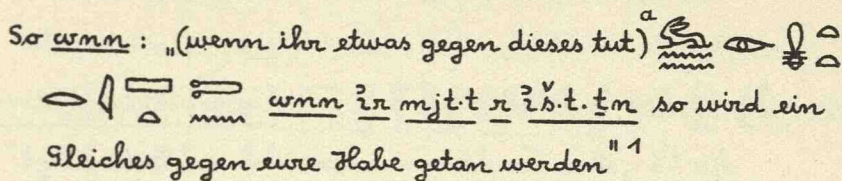 So wnn : „(wenn ihr etwas gegen dieses tut)ᵃ 𓃹𓈖𓈖𓁹𓏇𓏏𓏏
𓂋𓇋𓈙𓏏𓍿𓈖 wnn ỉr mjt·t r ỉš·t·ṯn so wird ein
Gleiches gegen eure Habe getan werden" 1